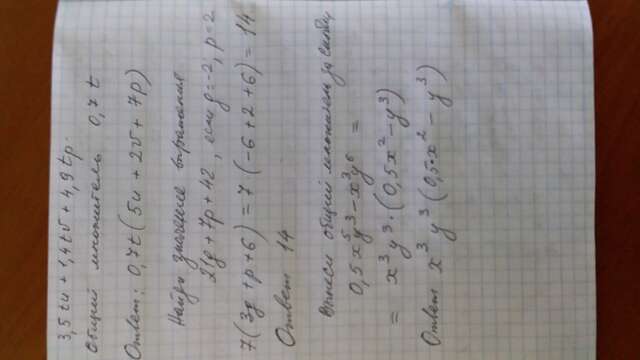 3,5tu + 1,4tv + 4,9tp.
Общий множитель 0,7t
Ответ: 0,7t(5u + 2v + 7p)
Найди значение выражения
21g + 7p + 42, если g=-2, p=2
7(3g + p + 6) = 7(-6 + 2 + 6) = 14
Ответ 14
Вынеси общий множитель за скобку
0,5x⁵y³ - x³y⁶ =
= x³y³·(0,5x² - y³)
Ответ x³y³(0,5·x² - y³)